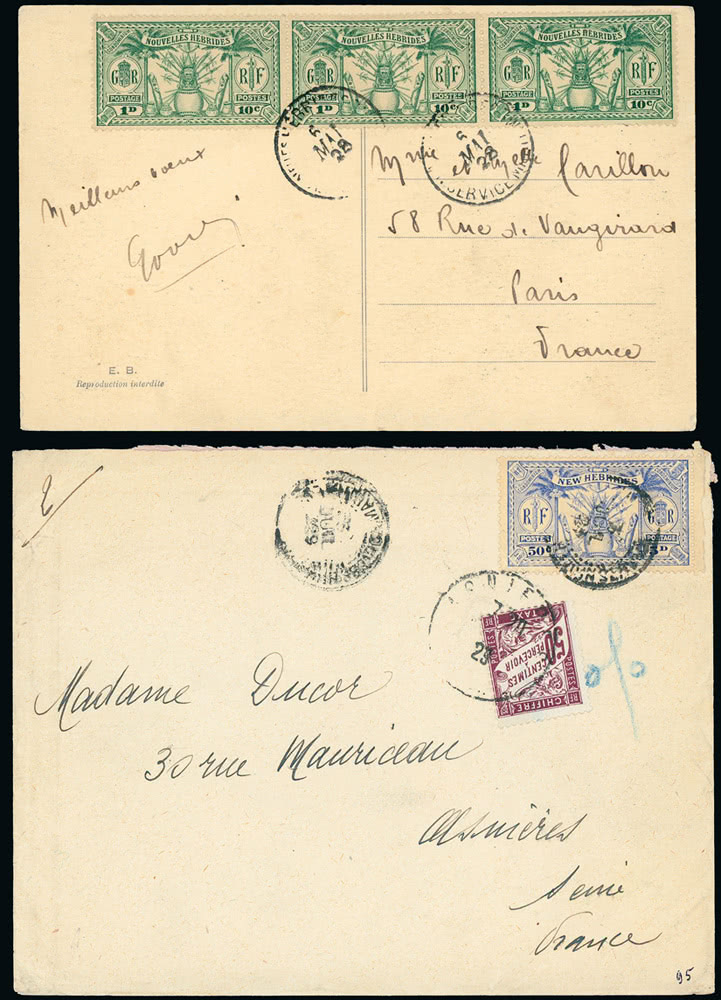 NOUVELLES HEBRIDES
G R
R F
POSTAGE
POSTES
1D
10c
NOUVELLES HEBRIDES
G R
R F
POSTAGE
POSTES
1D
10c
NOUVELLES HEBRIDES
G R
R F
POSTAGE
POSTES
1D
10c
6
MAI
28
6
MAI
28
SERVICE
Meilleurs voeux
Mme et Mlle Carillon
58 Rue de Vaugirard
Paris
France
E. B.
Reproduction interdite
NEW HEBRIDES
R F
G R
POSTES
POSTAGE
50c
5D
50
CENTIMES
A PERCEVOIR
CHIFFRE
TAXE
POSTES
Madame Ducor
30 rue Mauriceau
Asnières
Seine
France
95